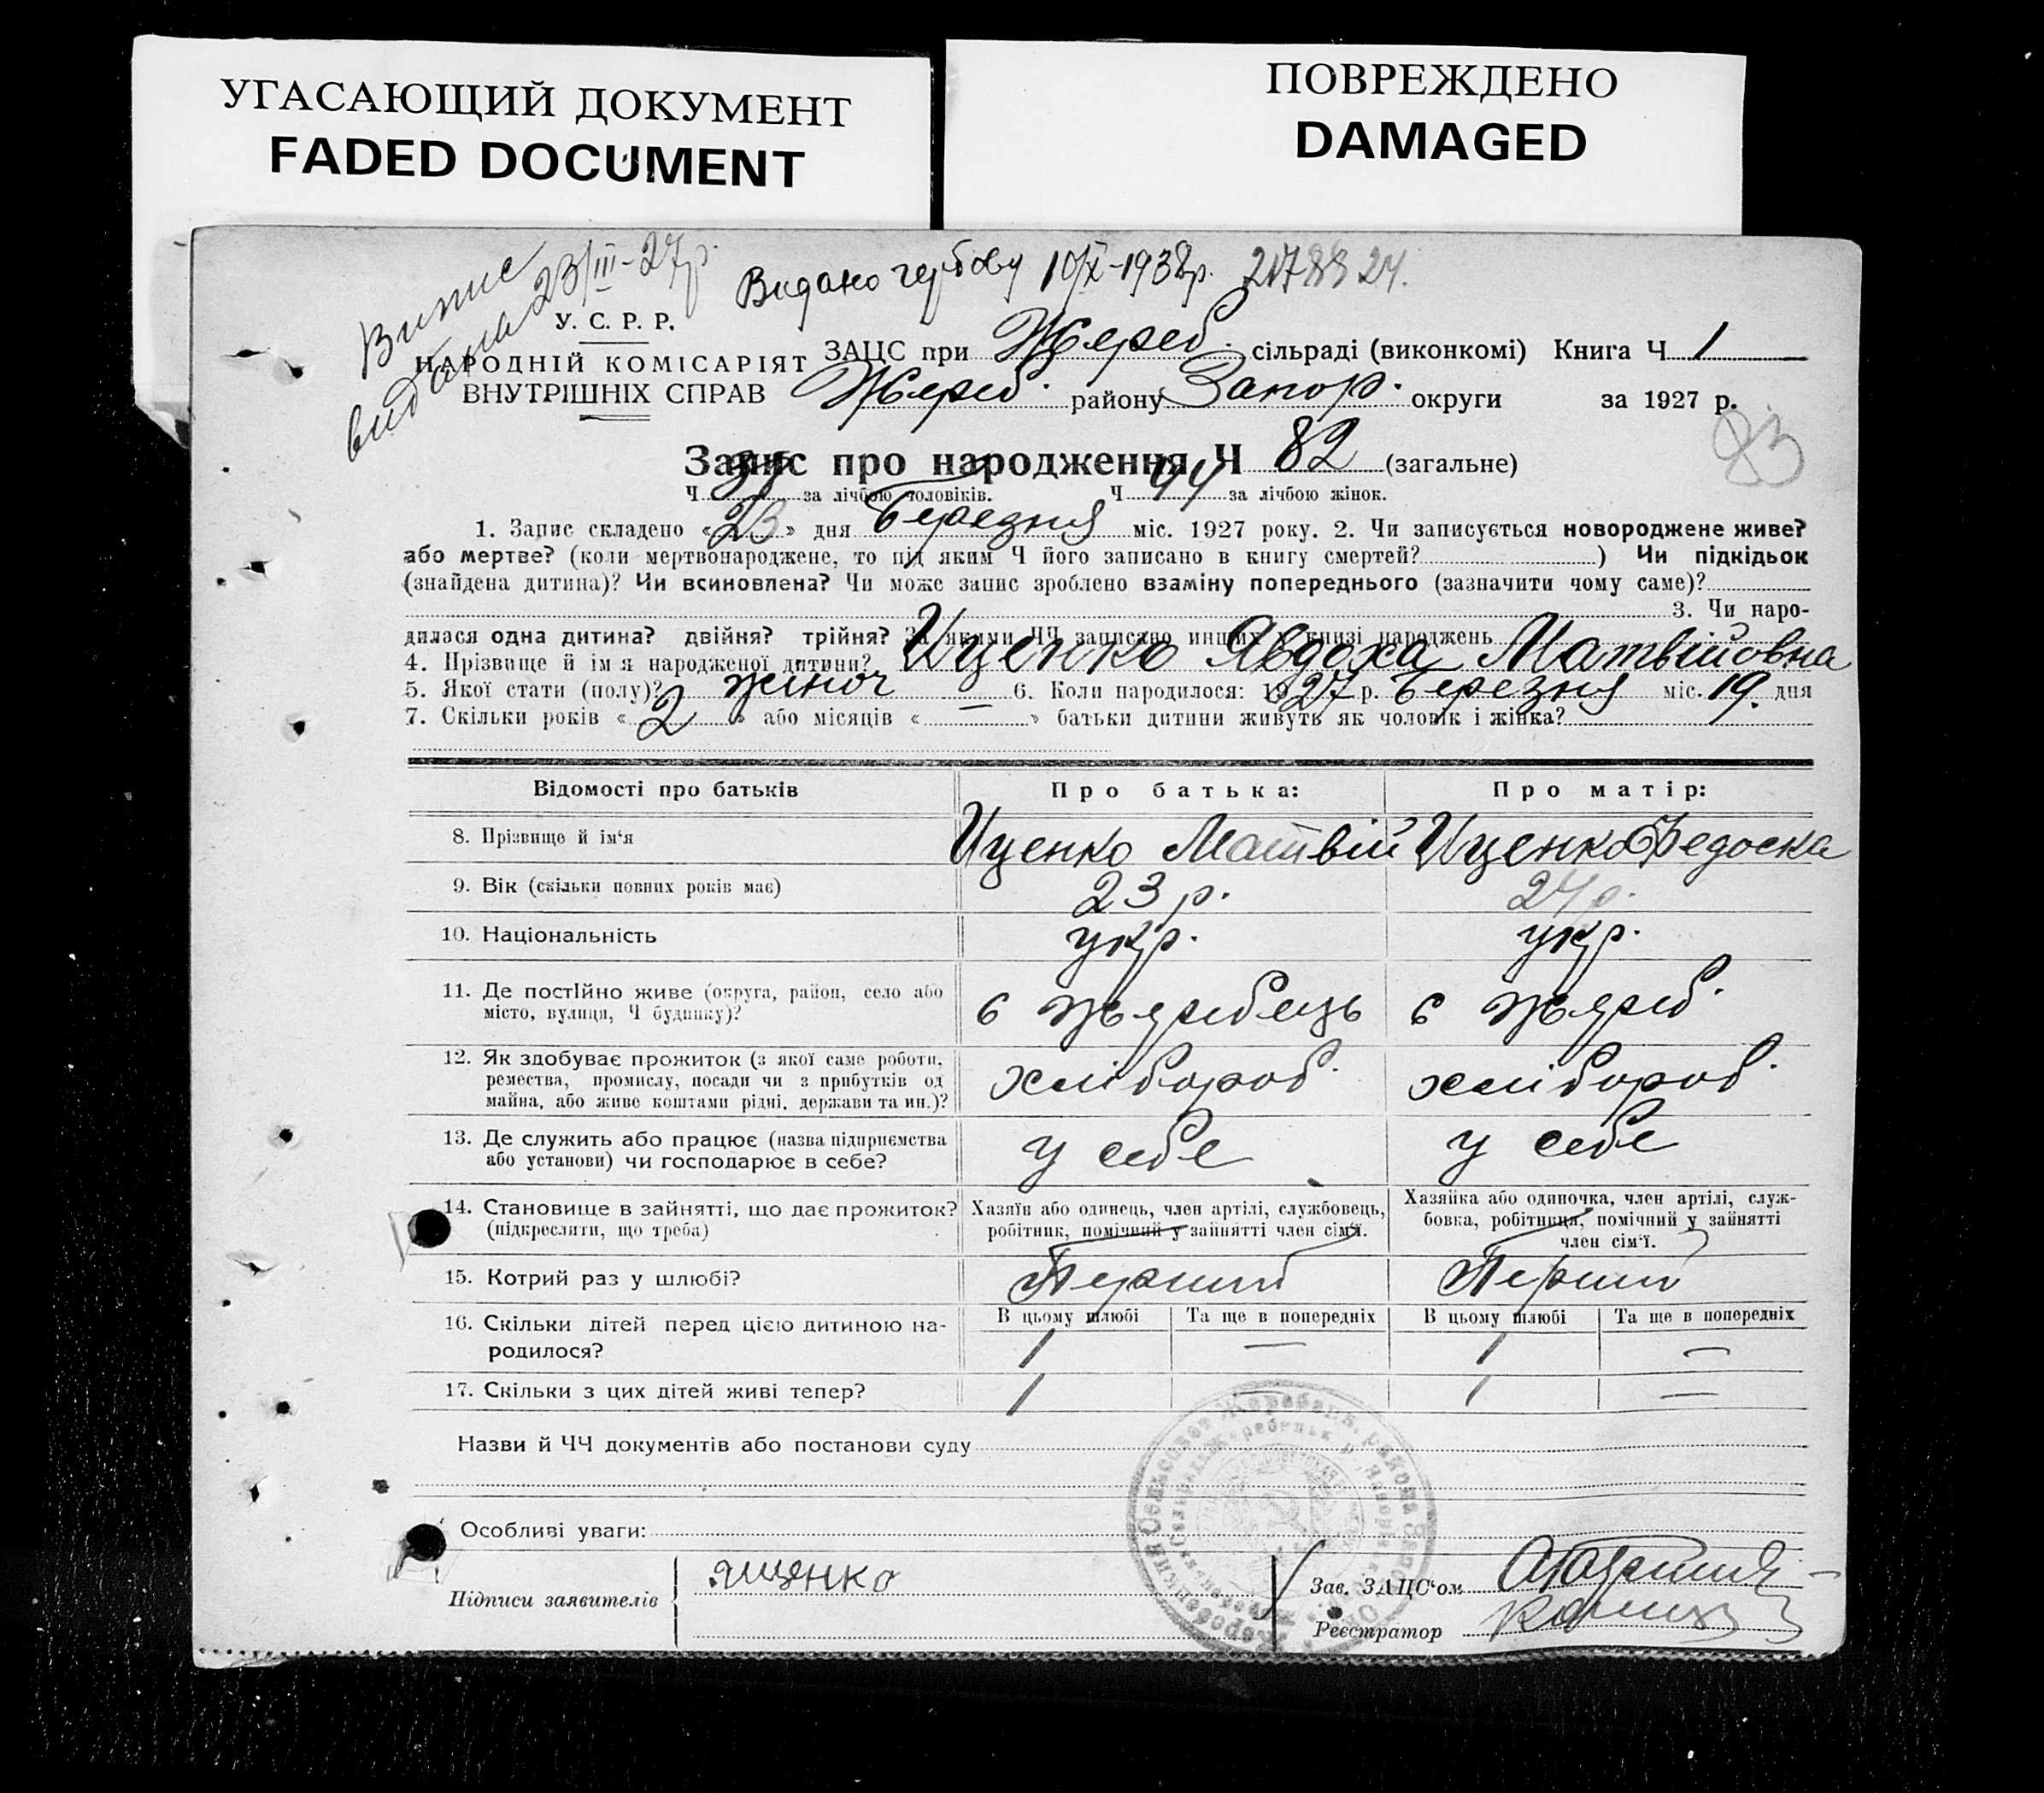 УГАСАЮЩИЙ ДОКУМЕНТ
FADED DOCUMENT
ПОВРЕЖДЕНО
DAMAGED
Випис видана 23/III-27р.
Видано гербову 10/X-1938р.
У. С. Р. Р.
НАРОДНІЙ КОМІСАРІЯТ
ВНУТРІШНІХ СПРАВ
ЗАЦС при Жереб. сільраді (виконкомі) Книга Ч 1
Жереб. району Запор. округи за 1927 р.
83
Запис про народження Ч 82 (загальне)
Ч за лічбою чоловіків. Ч 44 за лічбою жінок.
1. Запис складено «23» дня Березня міс. 1927 року. 2. Чи записується новороджене живе?
або мертве? (коли мертвонароджене, то під яким Ч його записано в книгу смертей? ) Чи підкідьок
(знайдена дитина)? Чи всиновлена? Чи може запис зроблено взаміну попереднього (зазначити чому саме)?
3. Чи наро-
дилася одна дитина? двійня? трійня? За якими ЧЧ записано инших у книзі народжень
4. Прізвище й ім я народженої дитини? Иценко Явдоха Матвійовна
5. Якої стати (полу)? жіноч 6. Коли народилося: 1927 р. Березня міс. 19. дня
7. Скільки років «2» або місяців « — » батьки дитини живуть як чоловік і жінка?
Відомості про батьків Про батька: Про матір:
8. Прізвище й ім'я Иценко Матвій Иценко Федоска
9. Вік (скільки повних років має) 23 р. 24 р.
10. Національність укр. укр.
11. Де постійно живе (округа, район, село або
місто, вулиця, Ч будинку)? с Жеребець с Жереб.
12. Як здобуває прожиток (з якої саме роботи,
ремества, промислу, посади чи з прибутків од
майна, або живе коштами рідні, держави та ин.)? хлібороб. хлібороб.
13. Де служить або працює (назва підприємства
або установи) чи господарює в себе? у себе у себе
14. Становище в зайнятті, що дає прожиток?
(підкреслити, що треба)
Хазяїн або одинець, член артілі, службовець,
робітник, помічний у зайнятті член сім'ї.
Хазяйка або одиночка, член артілі, служ-
бовка, робітниця, помічний у зайнятті
член сім'ї.
15. Котрий раз у шлюбі? Перший Перший
16. Скільки дітей перед цією дитиною на-
родилося?
В цьому шлюбі Та ще в попередніх В цьому шлюбі Та ще в попередніх
1 — 1 —
17. Скільки з цих дітей живі тепер? 1 — 1 —
Назви й ЧЧ документів або постанови суду
Особливі уваги:
Підписи заявителів Ященко
Зав. ЗАЦС'ом
Реєстратор